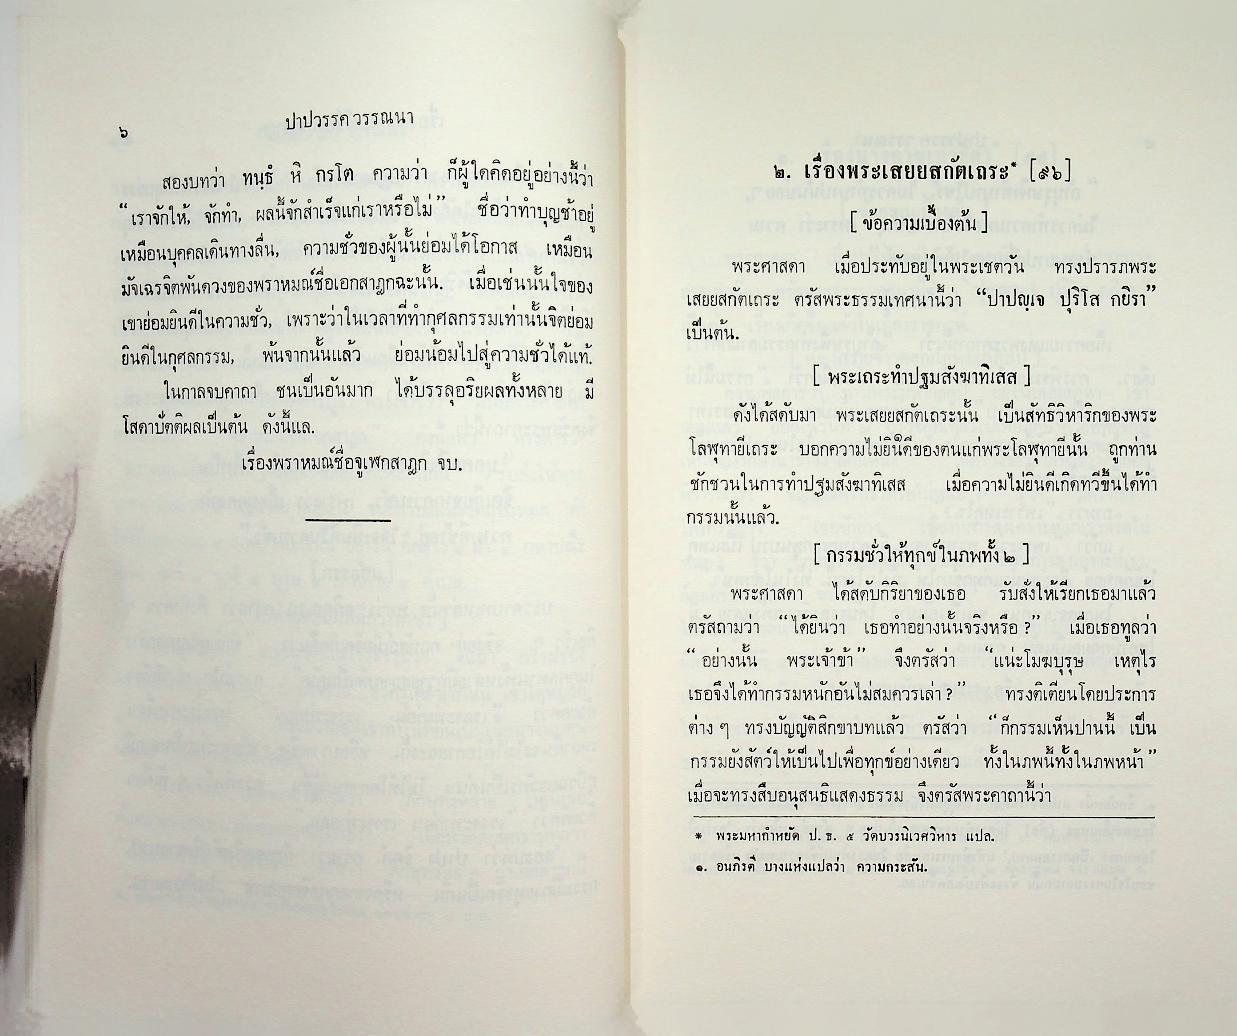 ๖
ปาปวรรค วรรณนา
สองบทว่า ทนฺธํ หิ กรโต ความว่า ก็ผู้ใดคิดอยู่อย่างนี้ว่า
“ เราจักให้, จักทำ, ผลนี้จักสำเร็จแก่เราหรือไม่” ชื่อว่าทำบุญช้าอยู่
เหมือนบุคคลเดินทางลื่น, ความชั่วของผู้นั้นย่อมได้โอกาส เหมือน
มัจเฉรจิตพันดวงของพราหมณ์ชื่อเอกสาฎกฉะนั้น. เมื่อเช่นนั้นใจของ
เขาย่อมยินดีในความชั่ว, เพราะว่าในเวลาที่ทำกุศลกรรมเท่านั้นจิตย่อม
ยินดีในกุศลกรรม, พ้นจากนั้นแล้ว ย่อมน้อมไปสู่ความชั่วได้แท้.
ในกาลจบคาถา ชนเป็นอันมาก ได้บรรลุอริยผลทั้งหลาย มี
โสดาปัตติผลเป็นต้น ดังนี้แล.
เรื่องพราหมณ์ชื่อจูเฬกสาฎก จบ.
๒. เรื่องพระเสยยสกัตเถระ* [๙๖]
[ ข้อความเบื้องต้น ]
พระศาสดา เมื่อประทับอยู่ในพระเชตวัน ทรงปรารภพระ
เสยยสกัตเถระ ตรัสพระธรรมเทศนานี้ว่า “ปาปญฺเจ ปุริโส กยิรา”
เป็นต้น.
[ พระเถระทำปฐมสังฆาทิเสส ]
ดังได้สดับมา พระเสยยสกัตเถระนั้น เป็นสัทธิวิหาริกของพระ
โลฬุทายีเถระ บอกความไม่ยินดีของตนแก่พระโลฬุทายีนั้น ถูกท่าน
ชักชวนในการทำปฐมสังฆาทิเสส เมื่อความไม่ยินดีเกิดทวีขึ้นได้ทำ
กรรมนั้นแล้ว.
[ กรรมชั่วให้ทุกข์ในภพทั้ง ๒ ]
พระศาสดา ได้สดับกิริยาของเธอ รับสั่งให้เรียกเธอมาแล้ว
ตรัสถามว่า “ได้ยินว่า เธอทำอย่างนั้นจริงหรือ ?” เมื่อเธอทูลว่า
“ อย่างนั้น พระเจ้าข้า” จึงตรัสว่า “แน่ะโมฆบุรุษ เหตุไร
เธอจึงได้ทำกรรมหนักอันไม่สมควรเล่า ?” ทรงติเตียนโดยประการ
ต่าง ๆ ทรงบัญญัติสิกขาบทแล้ว ตรัสว่า “ก็กรรมเห็นปานนี้ เป็น
กรรมยังสัตว์ให้เป็นไปเพื่อทุกข์อย่างเดียว ทั้งในภพนี้ทั้งในภพหน้า”
เมื่อจะทรงสืบอนุสนธิแสดงธรรม จึงตรัสพระคาถานี้ว่า
* พระมหากำหยัด ป. ธ. ๕ วัดบวรนิเวศวิหาร แปล.
๑. อนภิรติ บางแห่งแปลว่า ความกระสัน.